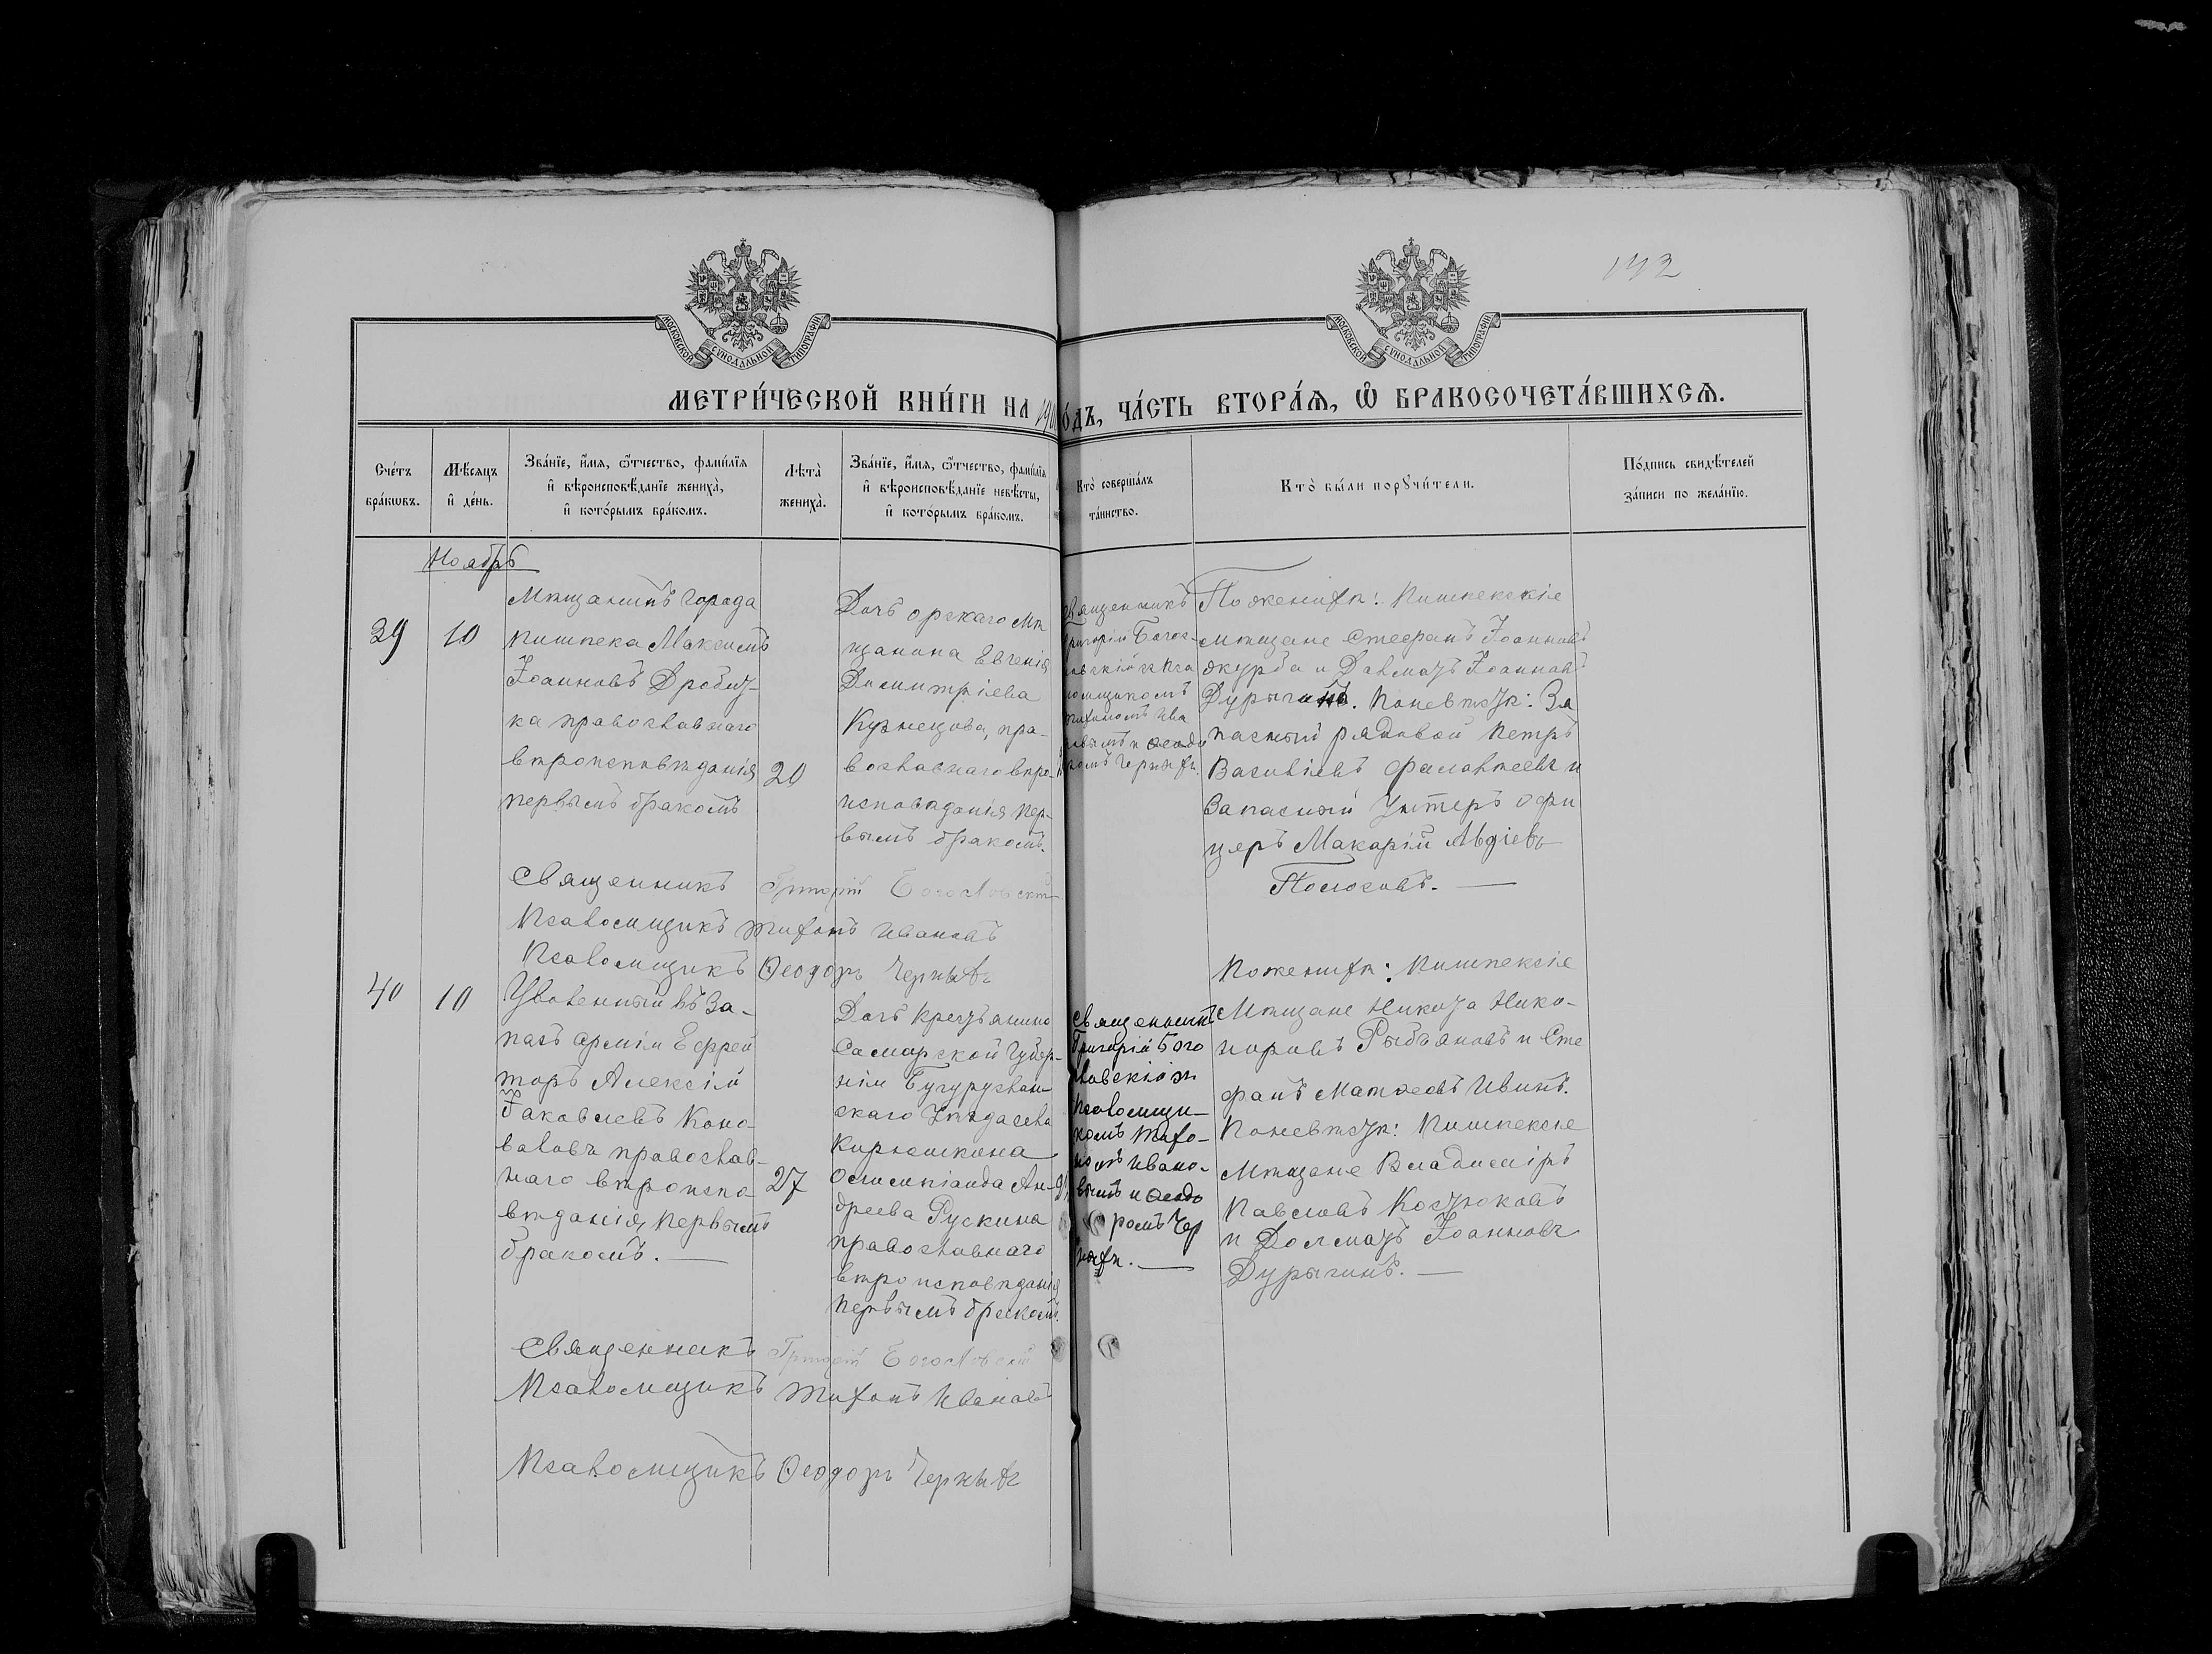 142
МОСКОВСКОЙ СѴНОДАЛЬНОЙ ТИПОГРАФІИ
МОСКОВСКОЙ СѴНОДАЛЬНОЙ ТИПОГРАФІИ
МЕТРИ́ЧЕСКОЙ КНИ́ГИ НА 190
О́ДЪ, ЧА́СТЬ ВТОРА́Ѧ, Ѽ БРАКОСОЧЕТА́ВШИХСѦ.
Сче́тъ
бра́кѡвъ.
Мѣ́сѧцъ
и҆ де́нь.
Зва́нїе, и҆́мѧ, ѻ҆́тчество, фами́лїѧ
и҆ вѣроисповѣ́данїе жениха̀,
и҆ кото́рымъ бра́комъ.
Лѣта̀
жениха̀.
Зва́нїе, и҆́мѧ, ѻ҆́тчество, фами́лїѧ
и҆ вѣроисповѣ́данїе невѣ́сты,
и҆ кото́рымъ бра́комъ.
Кто̀ соверша́лъ
та́инство.
Кто̀ бы́ли порꙋчи́тели.
По́дпись свидѣ́телей
за́писи по жела́нїю.
Ноябрь
39
10
Мѣщанинъ города
Пишпека Максимъ
Іоанновъ Дробоу-
ка православнаго
вѣроисповѣданія
первымъ бракомъ
20
Дочь орскаго мѣ
щанина Евгенія
Димитріева
Кузнецова, пра-
вославнаго вѣро-
исповѣданія пер-
вымъ бракомъ.
Священникъ
Григорій Богос-
ловскій съ пса
ломщикомъ
Тихономъ Ива
новымъ и Ѳеодо
ромъ Черныхъ.
По женихѣ: Пишпекскіе
мѣщане Стефанъ Іоанновъ
журба и Далматъ Іоанновъ
Дурыгинъ. По невѣстѣ: За
пасный рядовой Петръ
Василіевъ Фалалѣевъ и
Запасный Унтеръ офи
церъ Макарій Авдіевъ
Полосовъ. —
Священникъ Григорій Богословскій
Псаломщикъ Тихонъ Ивановъ
Псаломщикъ Ѳеодоръ Черныхъ
40
10
Уволенный въ За-
пасъ арміи Ефрей
торъ Алексій
Іаковлевъ Коно-
валовъ православ-
наго вѣроиспо
вѣданія, первымъ
бракомъ. —
27
Дочь крестьянина
Самарской Губер-
ніи Бугуруслан-
скаго Уѣзда села
Кирюшкина
Ан-
дреева Рускина
православнаго
вѣроисповѣданія
первымъ бракомъ.
Священникъ
Григорій Бого
ловскій съ
псаломщи-
комъ Тихо-
номъ Ивано-
вымъ и Ѳеодо
ромъ Чер
ныхъ. —
По женихѣ: Пишпекскіе
Мѣщане Никита Нико-
норовъ Рыбьяновъ и Сте
фанъ Матѳеевъ Ивинъ.
По невѣстѣ: Пишпекскіе
Мѣщане Владиміръ
Павловъ Костюковъ
и Долматъ Іоанновъ
Дурыгинъ. —
Священникъ Григорій Богословскій
Псаломщикъ Тихонъ Ивановъ
Псаломщикъ Ѳеодоръ Черныхъ